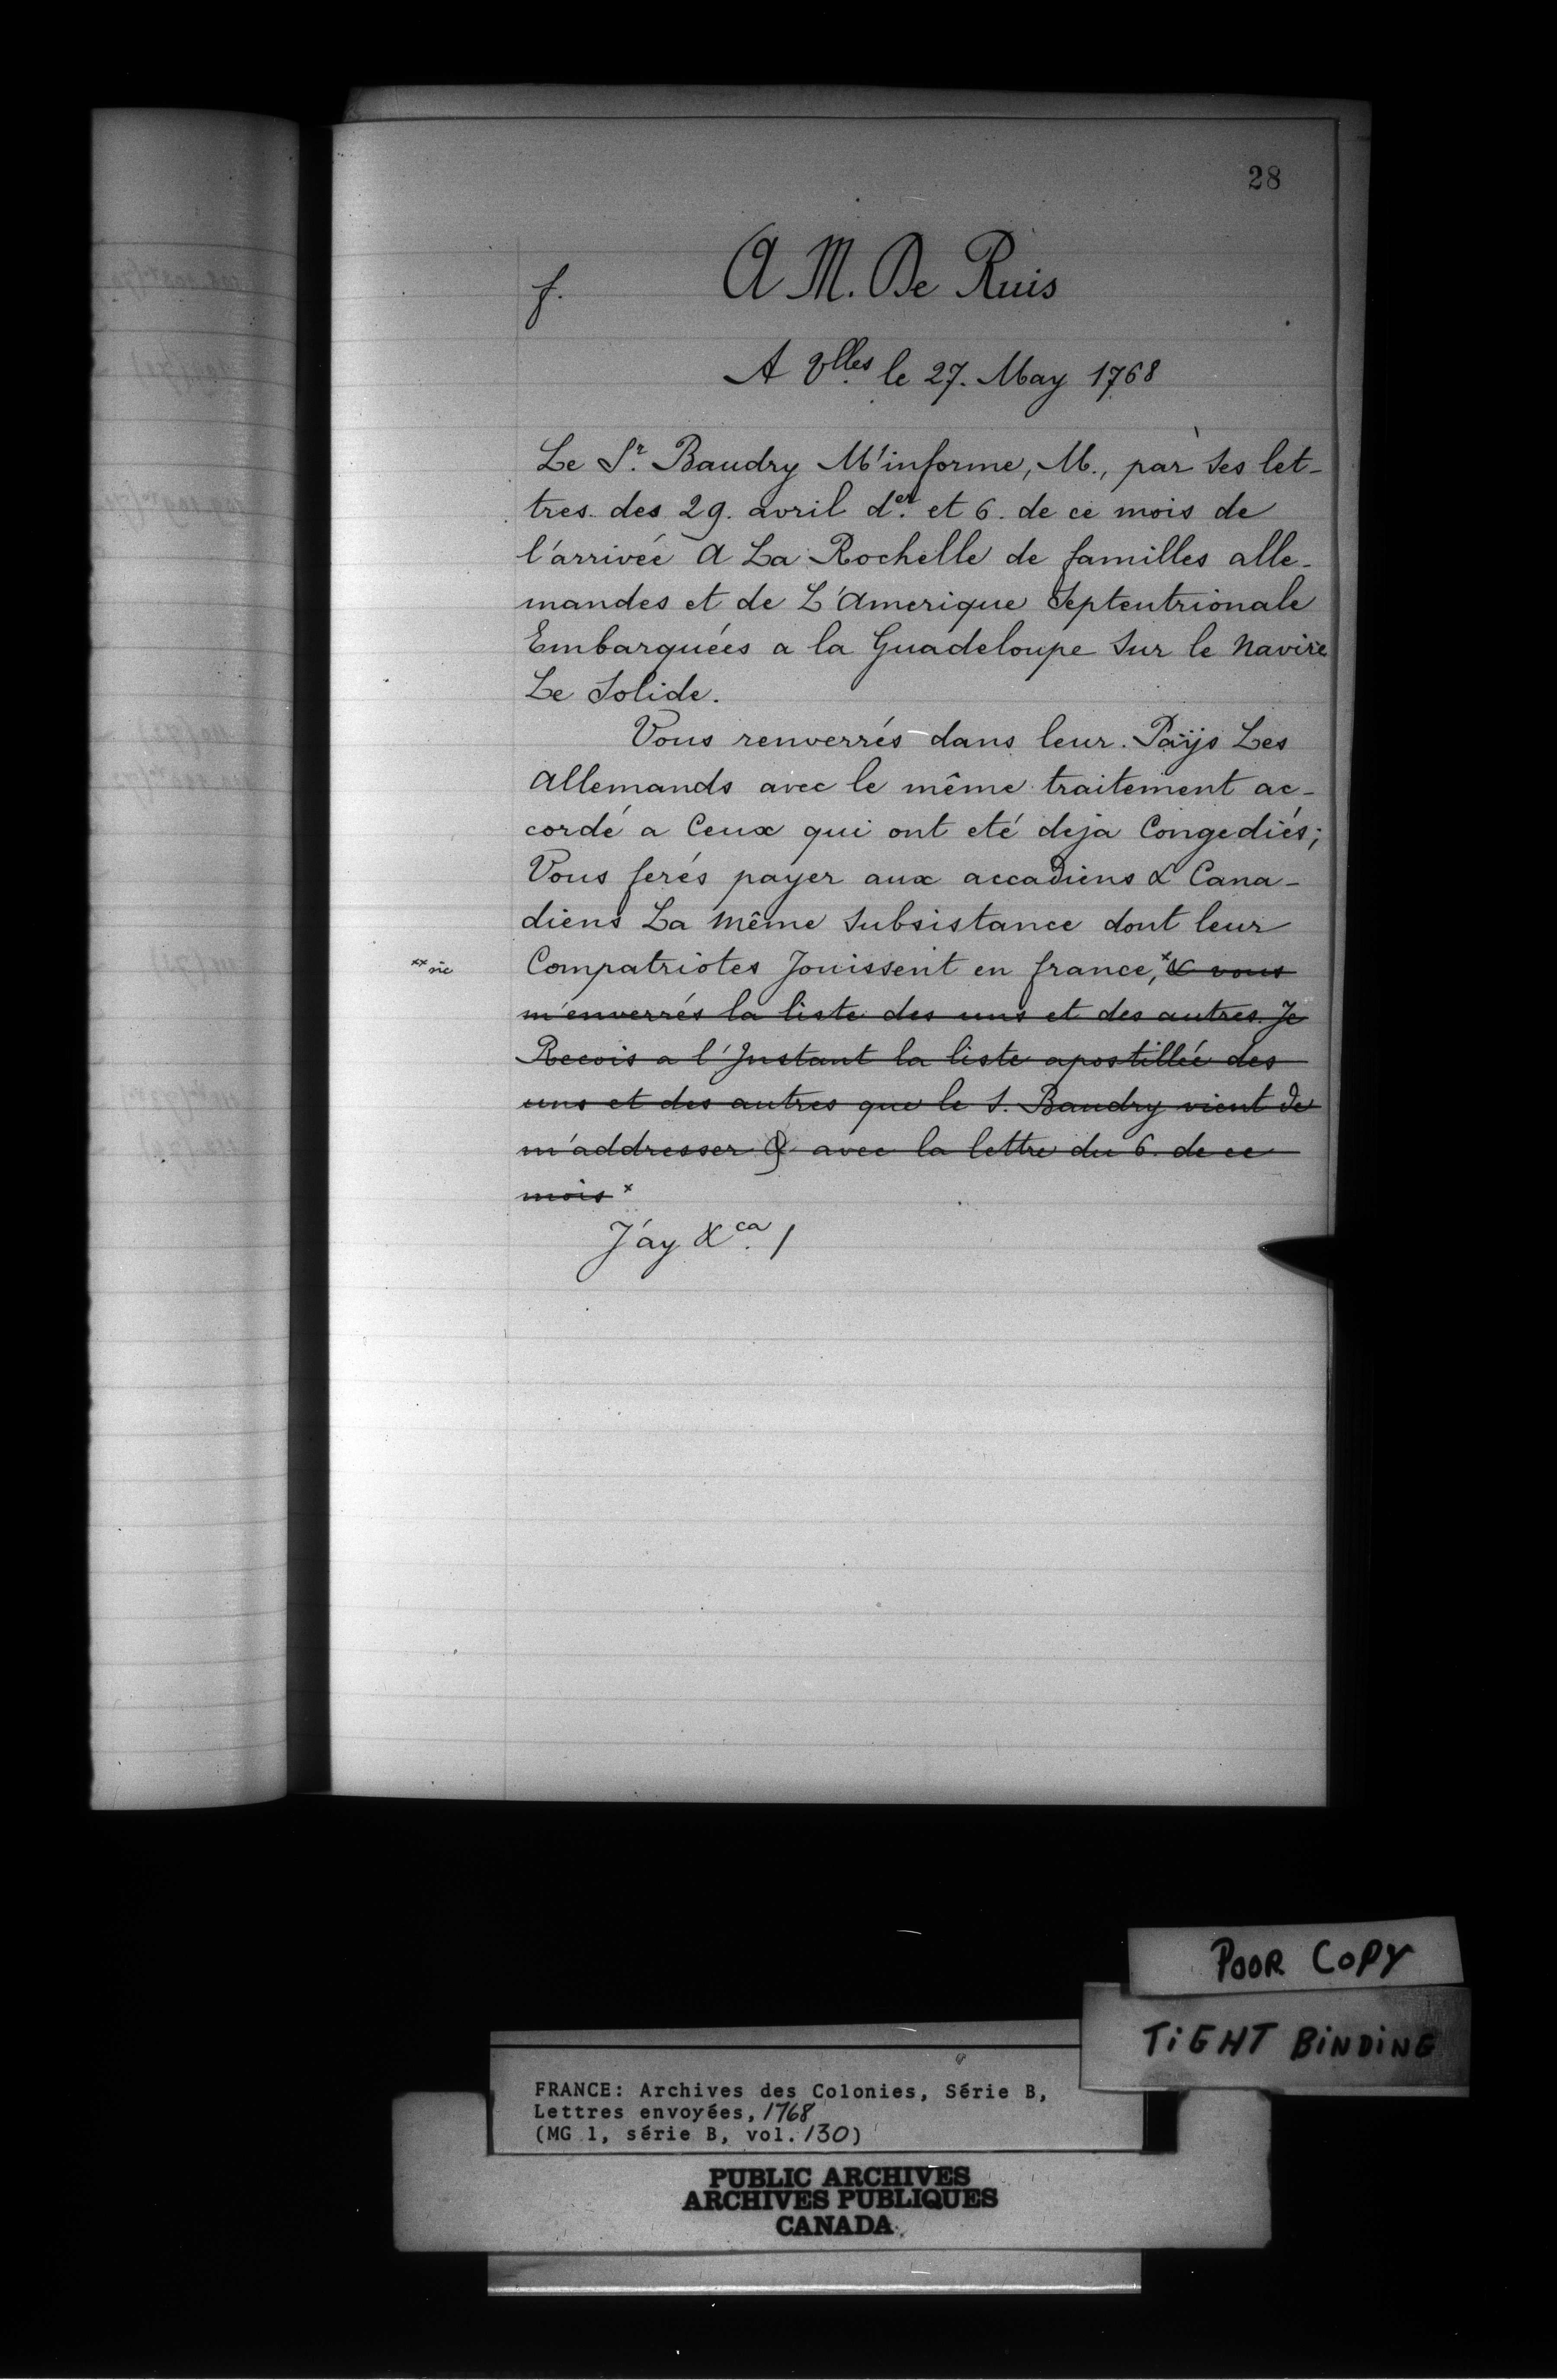 28
f. A M. De Ruis
A Vlles le 27. May 1768
Le Sr. Baudry M'informe, M., par ses let-
tres des 29. avril der. et 6. de ce mois de
l'arrivée A La Rochelle de familles alle-
mandes et de L'Amerique Septentrionale
Embarquées a la Guadeloupe sur le Navire
Le Solide.
Vous renverrés dans leur Païjs Les
Allemands avec le même traitement ac-
cordé a Ceux qui ont eté deja Congediés;
Vous ferés payer aux accadiens & Cana-
diens La Même subsistance dont leur
xx sic Compatriotes Jouissent en france,x & vous
m'enverrés la liste des uns et des autres. Je
Recois a l'Instant la liste apostillée des
uns et des autres que le S. Baudry vient de
m'addresser & avec la lettre du 6. de ce
mois x
J'ay &ca. /
POOR COPY
TIGHT BINDING
FRANCE: Archives des Colonies, Série B,
Lettres envoyées, 1768
(MG 1, série B, vol. 130)
PUBLIC ARCHIVES
ARCHIVES PUBLIQUES
CANADA